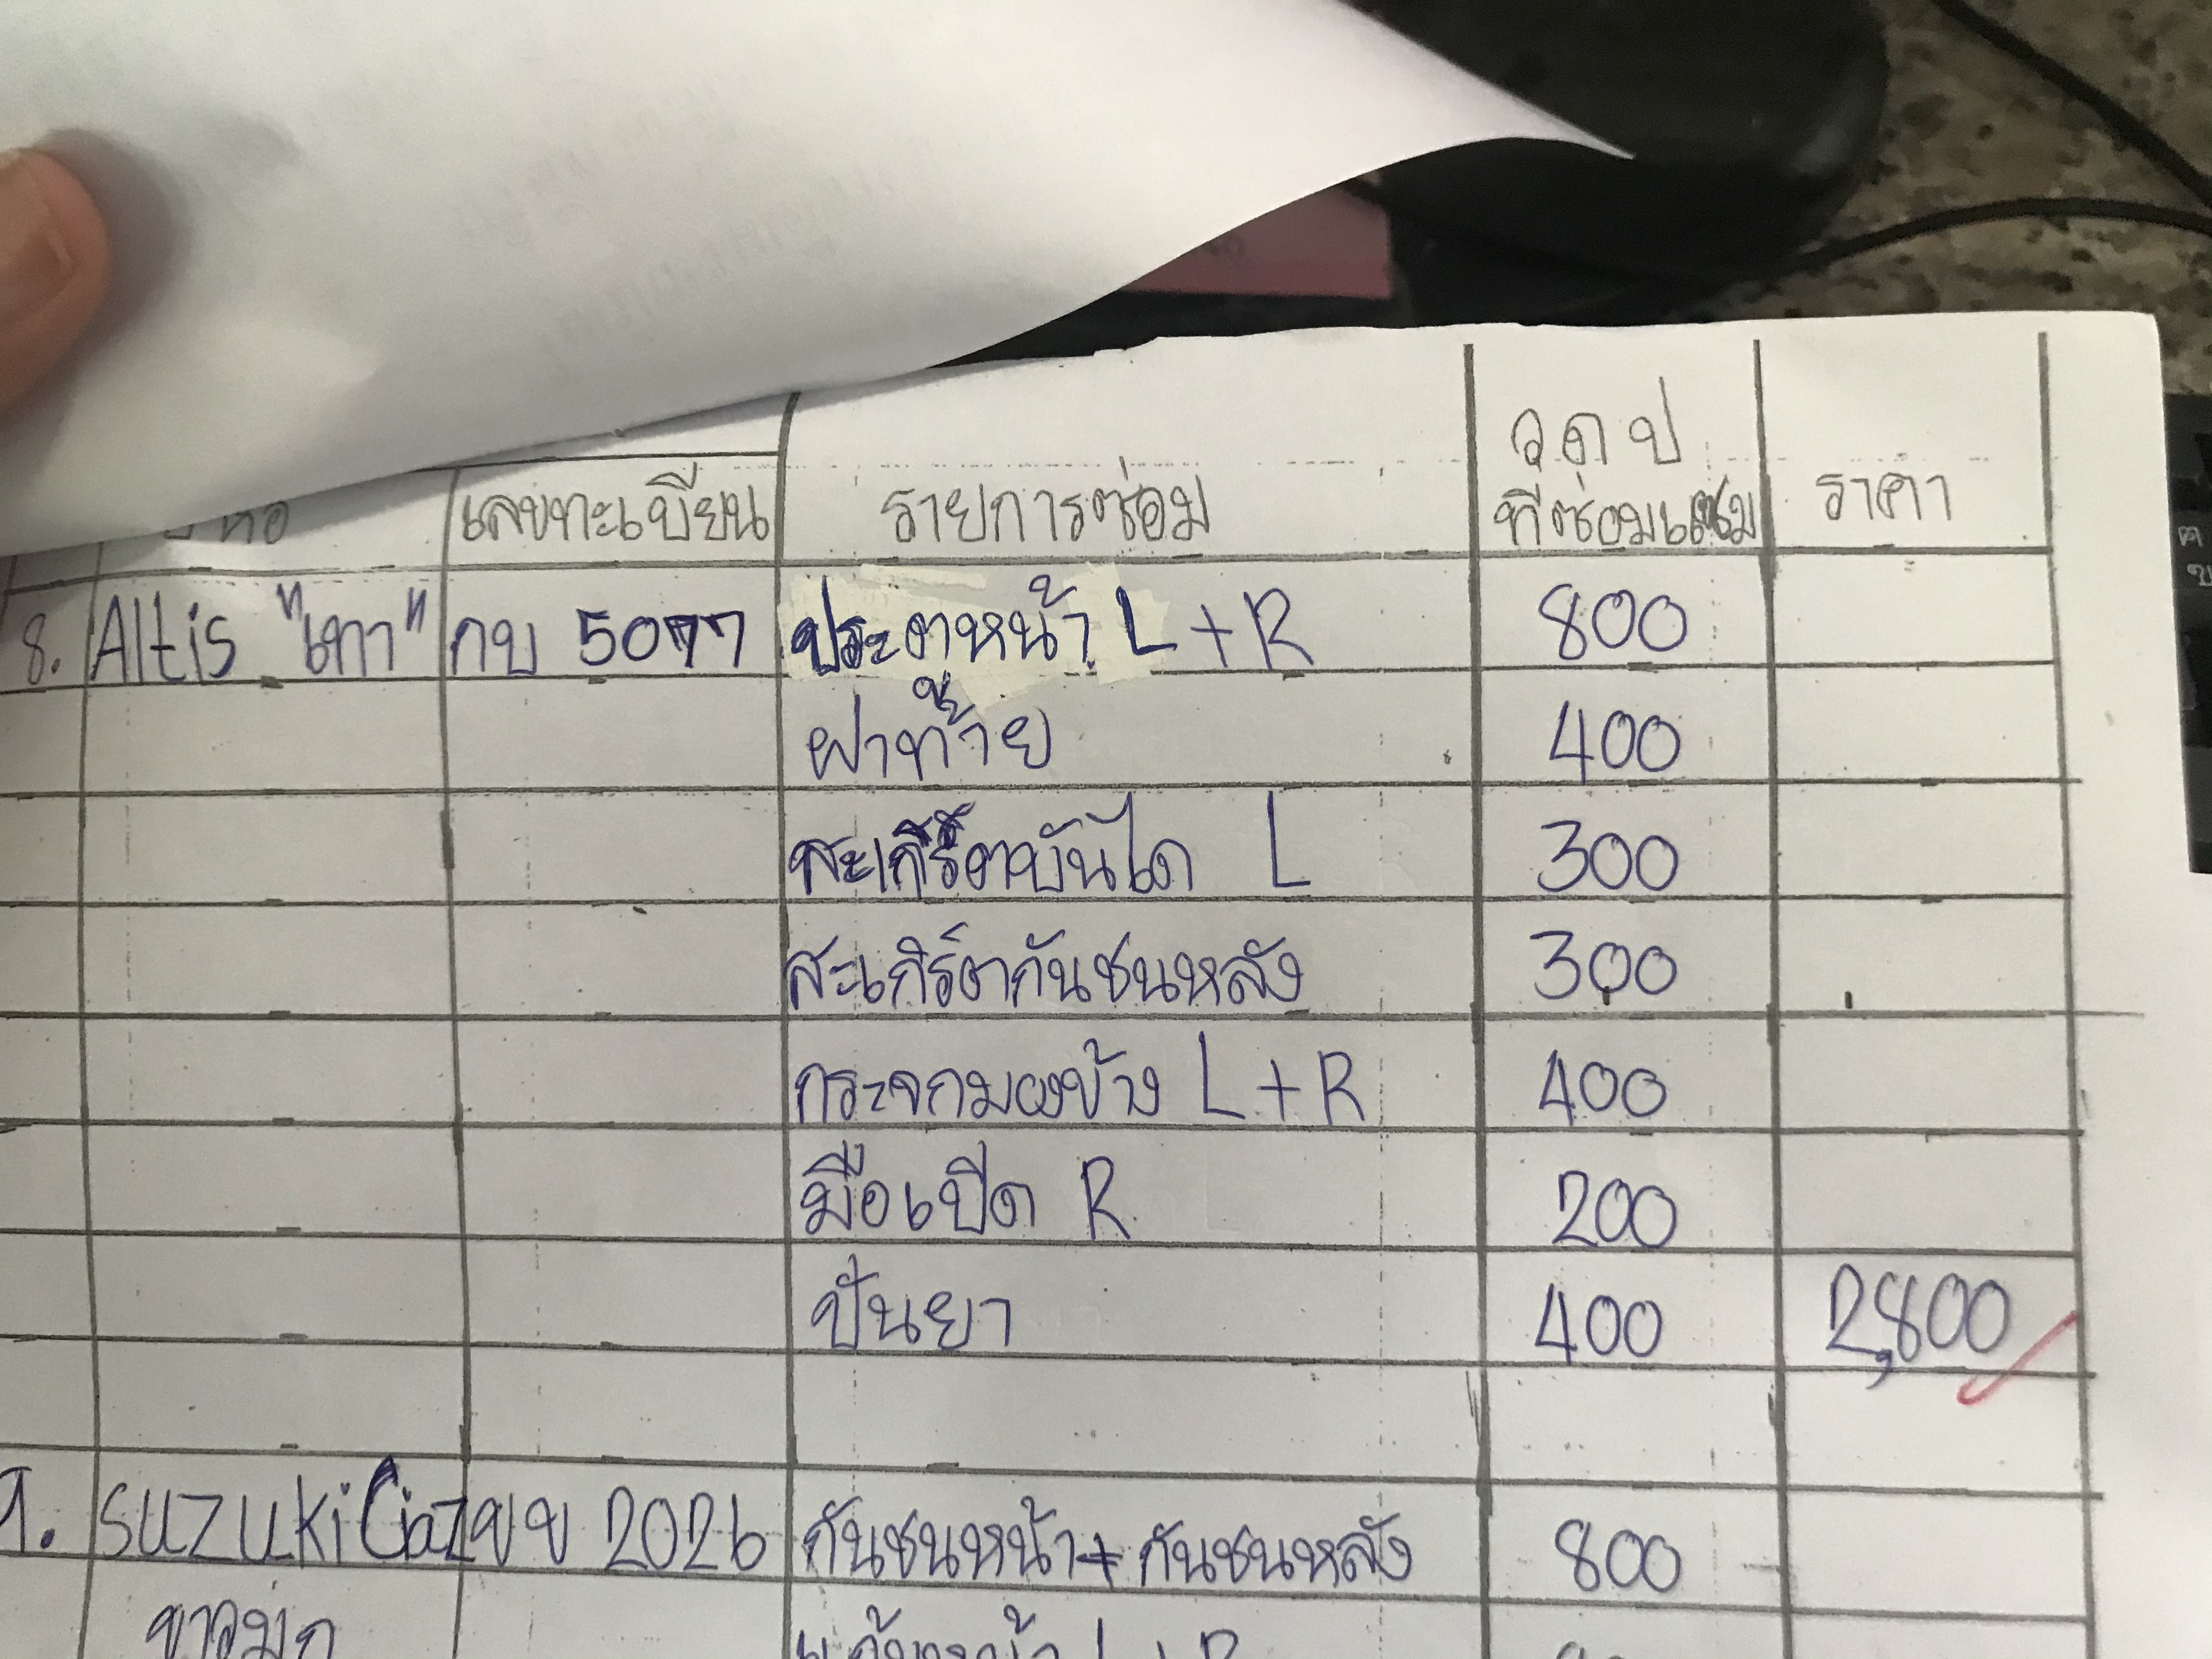 ว ด ป
ยี่ห้อ เลขทะเบียน รายการซ่อม ที่ซ่อมแซม ราคา
8. Altis "เทา" กบ 5077 ประตูหน้า L+R 800
ฝาท้าย 400
สะเกิร์ตบันได L 300
สะเกิร์ตกันชนหลัง 300
กระจกมองข้าง L+R 400
มือเปิด R 200
ปั่นยา 400 2,800
9. Suzuki Ciaz ขข 2026 กันชนหน้า+กันชนหลัง 800
ขาวมุก